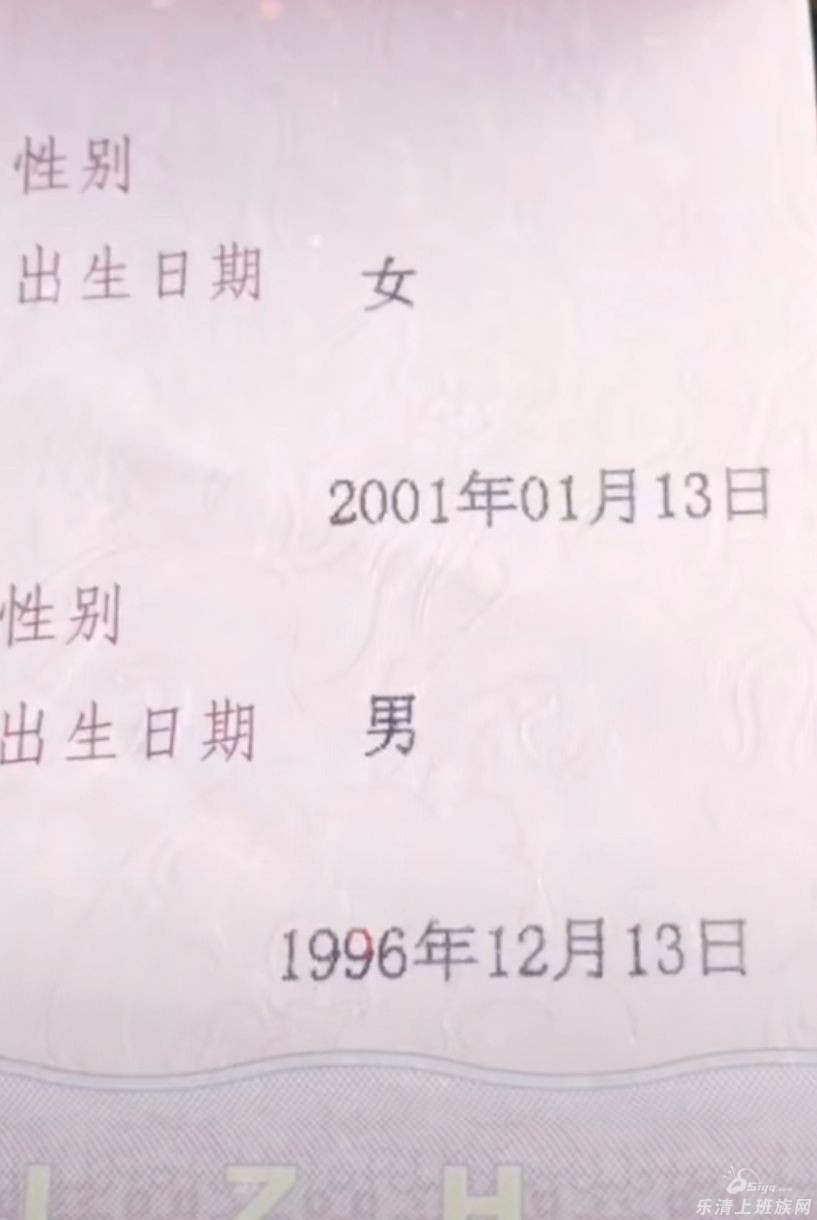 性别
出生日期 女
2001年01月13日
性别
出生日期 男
1996年12月13日
ZH
Siyq
乐清上班族网